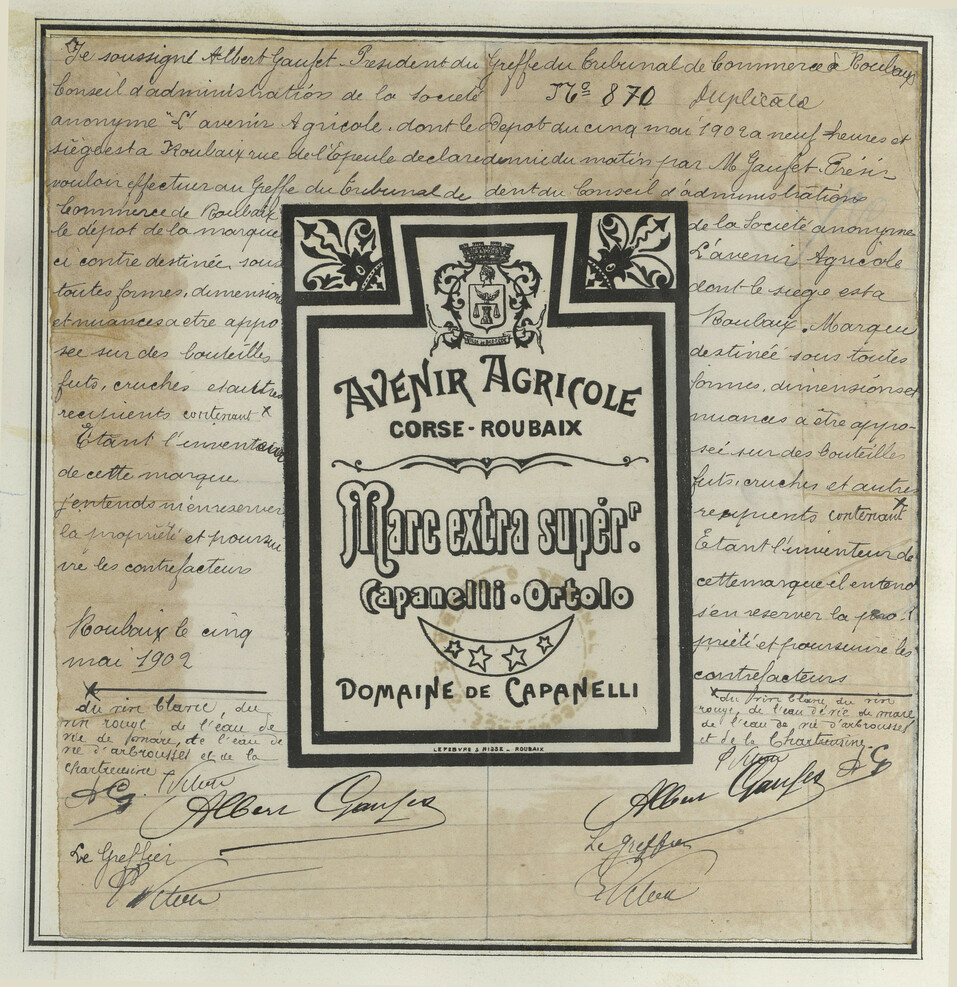 Je soussigné Albert Gaufet President du
Conseil d'administration de la Societé
anonyme "L'avenir Agricole, dont le
siège est a Roubaix rue de l'Epeule declare
vouloir effectuer au Greffe du Tribunal de
Commerce de Roubaix
le dépot de la marque
ci contre destinée sous
toutes formes, dimensions
et nuances a etre appo
sée sur des bouteilles
futs, cruches et autres
recipients contenant x
Etant l'inventeur
de cette marque
j'entends m'en reserver
la propriété et poursui
vre les contrefacteurs
Roubaix le cinq
mai 1902
x du vin blanc, du
vin rouge de l'eau de
vie de marc, de l'eau de
vie d'arbrousses et de la
chartreusine
AG
Albert Gaufet
Le Greffier
Greffe du Tribunal de Commerce à Roubaix
No 870 Duplicata
Depot du cinq mai 1902 a neuf heures et
demie du matin par M Gaufet Prési
dent du Conseil d'administration
de la Societé anonyme
L'avenir Agricole
dont le siege est a
Roubaix. Marque
destinée sous toutes
formes, dimensions et
nuances a être appo-
sée sur des bouteilles
futs, cruches et autres
recipients contenant x
Etant l'inventeur de
cette marque il entend
s'en reserver la pro-
priété et poursuivre les
contrefacteurs
x du vin blanc du vin
rouge, de l'eau de vie de marc
de l'eau de vie d'arbrousses
et de la Chartreusine
AG
Albert Gaufet
Le greffier
AVENIR AGRICOLE
CORSE-ROUBAIX
Marc extra supér.r
Capanelli. Ortolo
DOMAINE DE CAPANELLI
LEFEBVRE & RISSE - ROUBAIX